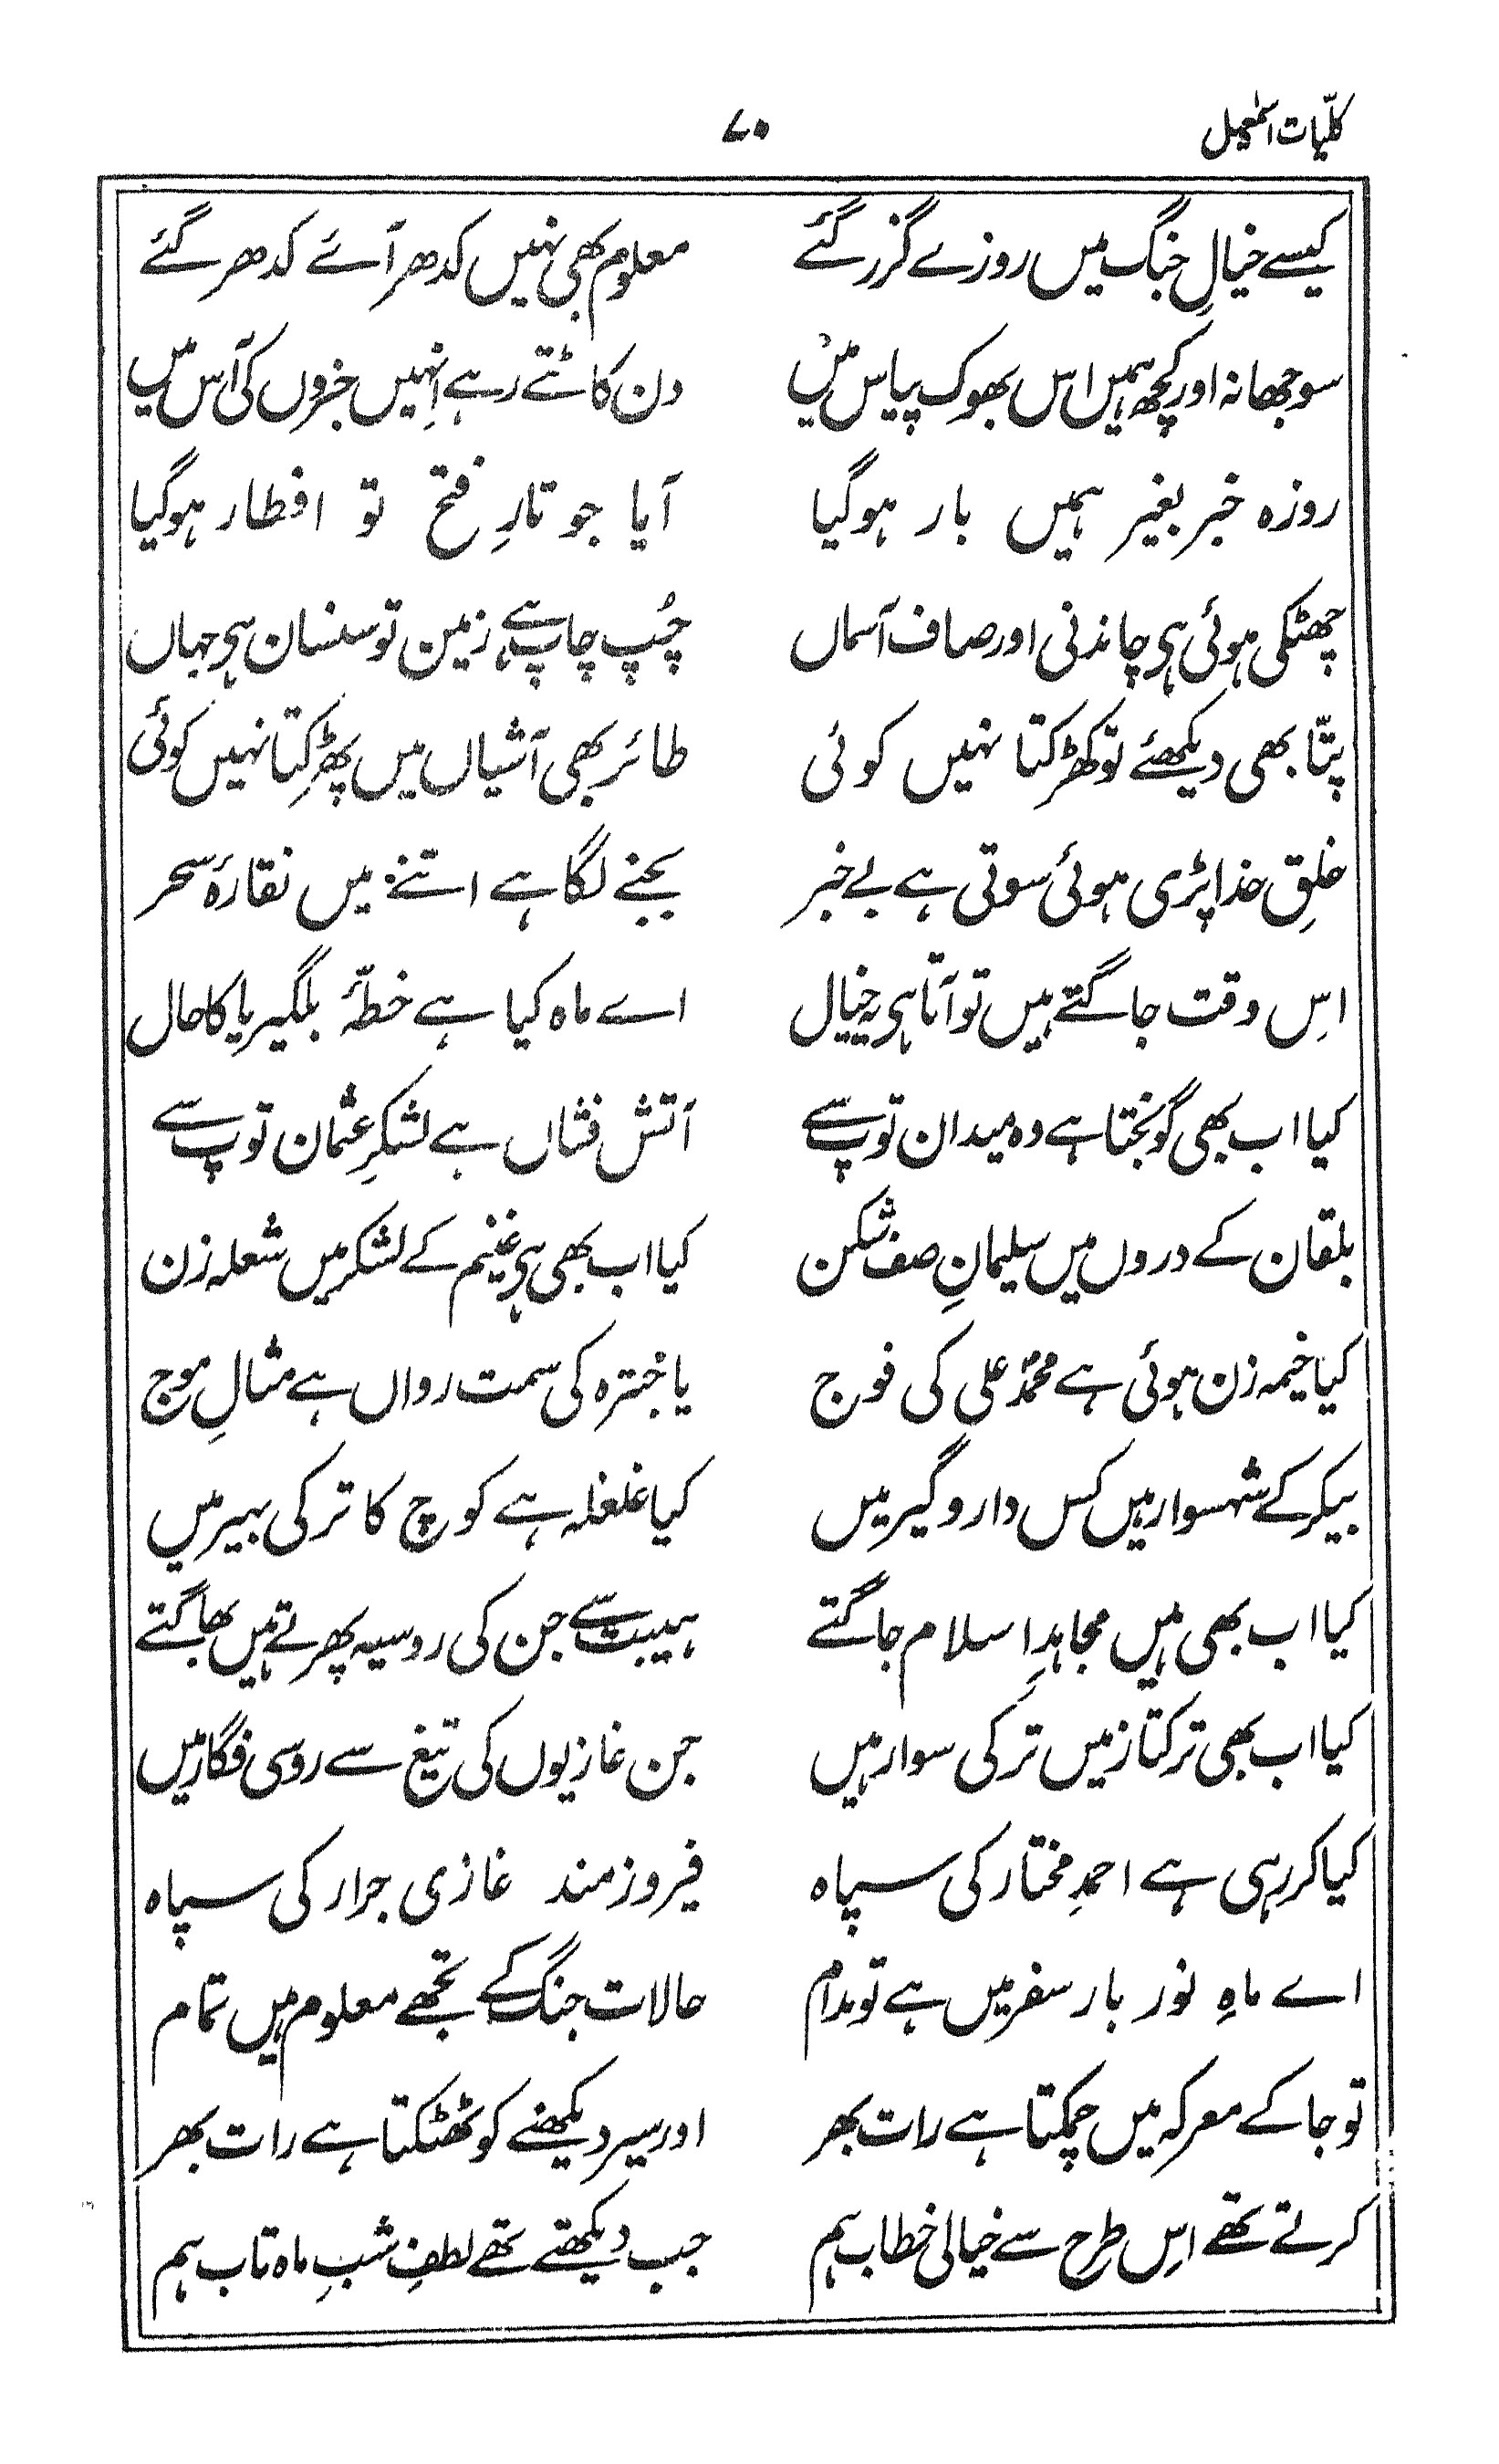 کلّیات اسمٰعیل ۷۰
کیسے خیالِ جنگ میں روزے گزر گئے معلوم بھی نہیں کدھر آئے کدھر گئے
سوجھا نہ اور کچھ ہمیں اس بھوک پیاس میں دن کاٹتے رہے اِنہیں خبروں کی آس میں
روزہ خبر بغیر ہمیں بار ہوگیا آیا جو تارِ فتح تو افطار ہوگیا
چھٹکی ہوئی ہی چاندنی اور صاف آسماں چُپ چاپ ہے زمین تو سنسان ہی جہاں
پتّا بھی دیکھئے تو کھڑکتا نہیں کوئی طائر بھی آشیاں میں پھڑکتا نہیں کوئی
خلقِ خدا پڑی ہوئی سوتی ہے بے خبر بجنے لگا ہے اتنے میں نقارۂ سحر
اِس وقت جاگتے ہیں تو آتا ہی یہ خیال اے ماہ کیا ہے خطّۂ بلگیریا کا حال
کیا اب بھی گونجتا ہے وہ میدان توپ سے آتش فشاں ہے لشکرِ عثمان توپ سے
بلقان کے دروں میں سلیمانِ صف شکن کیا اب بھی ہی غنیم کے لشکر میں شعلہ زن
کیا خیمہ زن ہوئی ہے محمدؐ علی کی فوج یا خبترہ کی سمت رواں ہے مثالِ موج
بیکر کے شہسوار ہیں کس دار و گیر میں کیا غلغلہ ہے کوچ کا ترکی بہیر میں
کیا اب بھی ہیں مجاہدِ اسلام جاگتے ہیبت سے جن کی روسیہ پھرتے ہیں بھاگتے
کیا اب بھی ترکتاز میں ترکی سوار ہیں جن غازیوں کی تیغ سے روسی فگار ہیں
کیا کر رہی ہے احمدِ مختار کی سپاہ فیروزمند غازی جرار کی سپاہ
اے ماہِ نور بار سفر میں ہے تو مدام حالات جنگ کے تجھے معلوم ہیں تمام
تو جا کے معرکہ میں چمکتا ہے رات بھر اور سیر دیکھنے کو ٹھٹکتا ہے رات بھر
کرتے تھے اِس طرح سے خیالی خطاب ہم جب دیکھتے تھے لطفِ شبِ ماہ تاب ہم